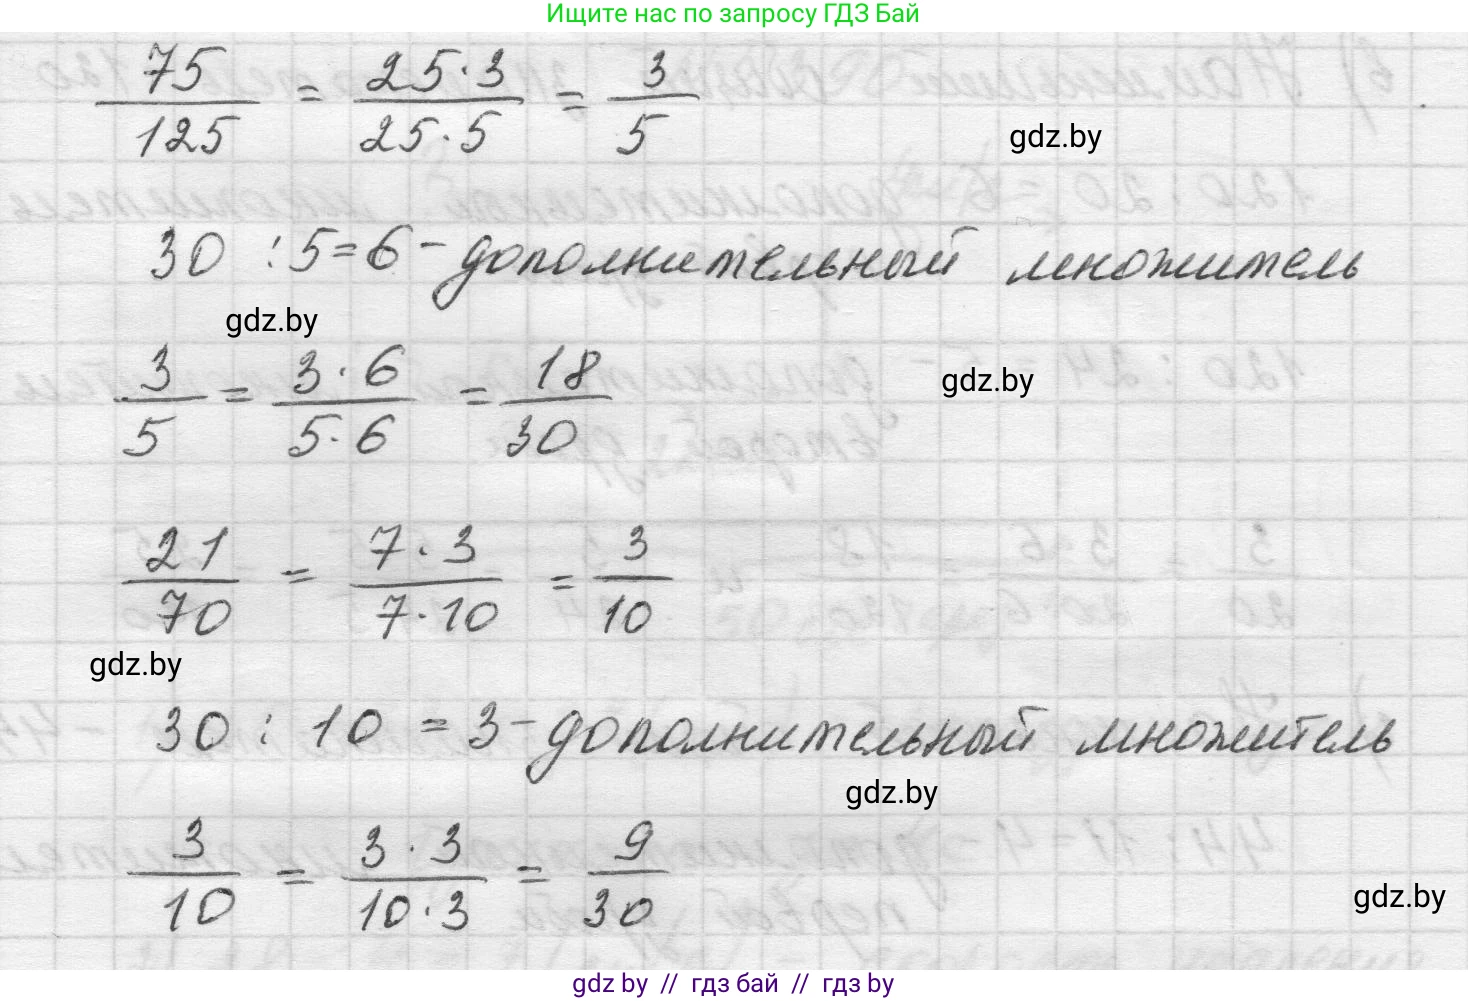 Ищите нас по запросу ГДЗ Бай
75/125 = 25·3/25·5 = 3/5
gdz.by
30 : 5 = 6 - дополнительный множитель
gdz.by
3/5 = 3·6/5·6 = 18/30
gdz.by
21/70 = 7·3/7·10 = 3/10
gdz.by
30 : 10 = 3 - дополнительный множитель
gdz.by
3/10 = 3·3/10·3 = 9/30
gdz.by
gdz by // гдз бай // гдз by